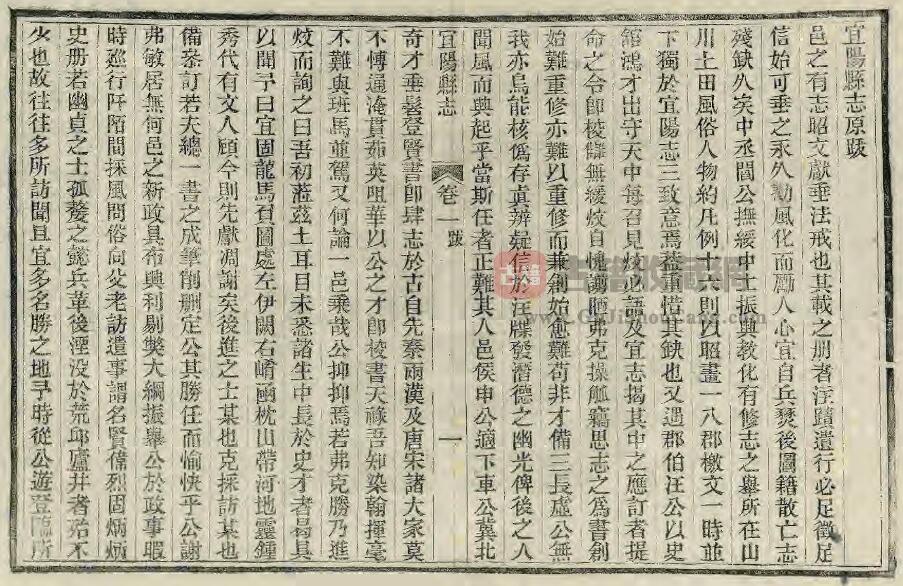 宜陽縣志原跋
邑之有志昭文獻垂法戒也其載之册者注蹟遺行必足徵足
信始可垂之永久勷風化而勵人心宜自兵燹後圖籍散亡志
殘缺久矣中丞閻公撫綏中土振興敎化有修志之舉所在山
川土田風俗人物約凡例十二則以昭畫一八郡檄文一時並
下獨於宜陽志三致意焉葢重惜其缺也又遇郡伯汪公以史
舘鴻才出守天中每召見炆必語及宜志揭其中之應訂者提
命之令卽梭讎無緩炆自愧譾陋弗克操觚竊思志之爲書創
始難重修亦難以重修而兼創始愈難苟非才備三長虛公無
我亦烏能核僞存眞辨疑信於汪牒發潛德之幽光俾後之人
聞風而興起乎當斯任者正難其人邑侯申公適下車公冀北
宜陽縣志
卷一
跋
一
奇才垂髫登賢書卽肆志於古自先秦兩漢及唐宋諸大家莫
不博通淹貫茹英咀華以公之才卽梭書天祿吾知染翰揮毫
不難與班馬並駕又何論一邑乘哉公抑抑焉若弗克勝乃進
炆而詢之曰吾初蒞茲土耳目未悉諸生中長於史才者曷具
以聞予曰宜固龍馬召圖處左伊闕右崤函枕山帶河地靈鍾
秀代有文人顧今則先獻凋謝矣後進之士某也克採訪某也
備叅訂若夫總一書之成筆削刪定公其勝任而愉快乎公謝
弗敏居無何邑之新政具布興利剔獘大綱振舉公於政事暇
時廵行阡陌間採風問俗向父老訪遺事謂名賢偉烈固炳炳
史册若幽貞之士孤嫠之懿兵葦後湮没於荒邱廬井者殆不
少也故往往多所訪聞且宜多名勝之地予時從公遊登臨所
古籍收藏網
www.GuJiShouCang.com